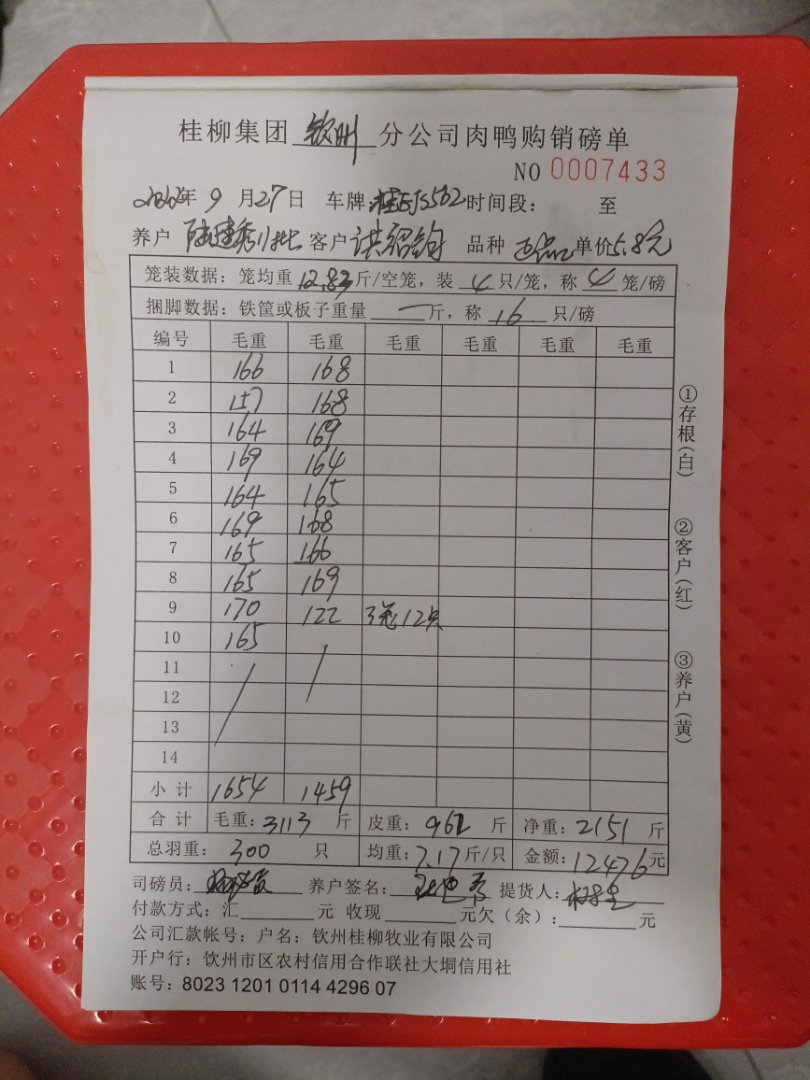 桂柳集团 钦州 分公司肉鸭购销磅单
NO 0007433
年 9 月 27 日 车牌: 时间段: 至
养户 客户 洪绍钧 品种 单价 5.8元
笼装数据: 笼均重 12.83 斤/空笼, 装 4 只/笼, 称 4 笼/磅
捆脚数据: 铁筐或板子重量 一 斤, 称 16 只/磅
编号 毛重 毛重 毛重 毛重 毛重 毛重
1 166 168
2 157 168
3 164 169
4 169 164
5 164 165
6 169 168
7 165 166
8 165 169
9 170 122 3笼12只
10 165
11
12
13
14
小计 1654 1459
合计 毛重: 3113 斤 皮重: 962 斤 净重: 2151 斤
总羽重: 300 只 均重: 7.17 斤/只 金额: 12476 元
司磅员: 养户签名: 提货人:
付款方式: 汇 元 收现 元欠(余): 元
公司汇款帐号: 户名: 钦州桂柳牧业有限公司
开户行: 钦州市区农村信用合作联社大垌信用社
账号: 8023 1201 0114 4296 07
①存根(白)
②客户(红)
③养户(黄)